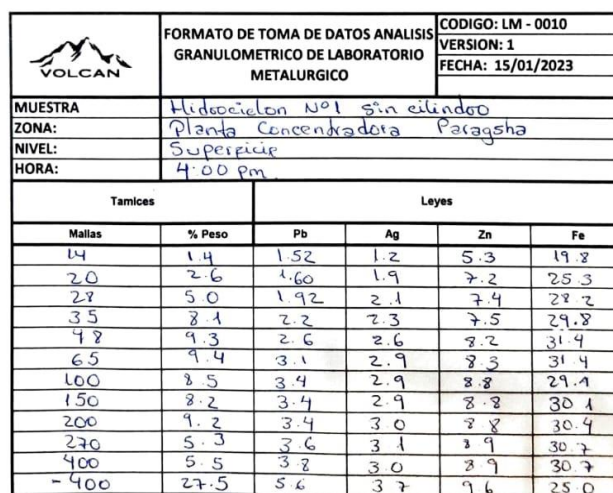 VOLCAN
FORMATO DE TOMA DE DATOS ANALISIS
GRANULOMETRICO DE LABORATORIO
METALURGICO
CODIGO: LM - 0010
VERSION: 1
FECHA: 15/01/2023
MUESTRA Hidrociclon Nº1 sin cilindro
ZONA: Planta Concentradora Paragsha
NIVEL: Superficie
HORA: 4:00 pm.
Tamices Leyes
Mallas % Peso Pb Ag Zn Fe
14 1.4 1.52 1.2 5.3 19.8
20 2.6 1.60 1.9 7.2 25.3
28 5.0 1.92 2.1 7.4 28.2
35 8.1 2.2 2.3 7.5 29.8
48 9.3 2.6 2.6 8.2 31.4
65 9.4 3.1 2.9 8.3 31.4
100 8.5 3.4 2.9 8.8 29.4
150 8.2 3.4 2.9 8.8 30.1
200 9.2 3.4 3.0 8.8 30.4
270 5.3 3.6 3.1 8.9 30.7
400 5.5 3.8 3.0 8.9 30.7
-400 27.5 5.6 3.7 9.6 25.0